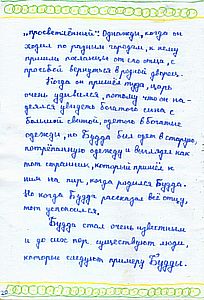 „просветлённый“. Однажды, когда он
ходил по разным городам, к нему
пришли посланцы от его отца, с
просьбой вернуться в родной дворец.
Когда он пришёл туда, царь
очень удивился, потому что он на-
деялся увидеть богатого сына с
большой свитой, одетого в богатые
одежды, но Будда был одет в старую,
потрёпанную одежду и выглядел как
тот странник, который пришёл к
ним на пир, когда родился Будда.
Но когда Будда рассказал всё отцу,
тот успокоился.
Будда стал очень известным
и до сих пор существуют люди,
которые следуют примеру Будды.